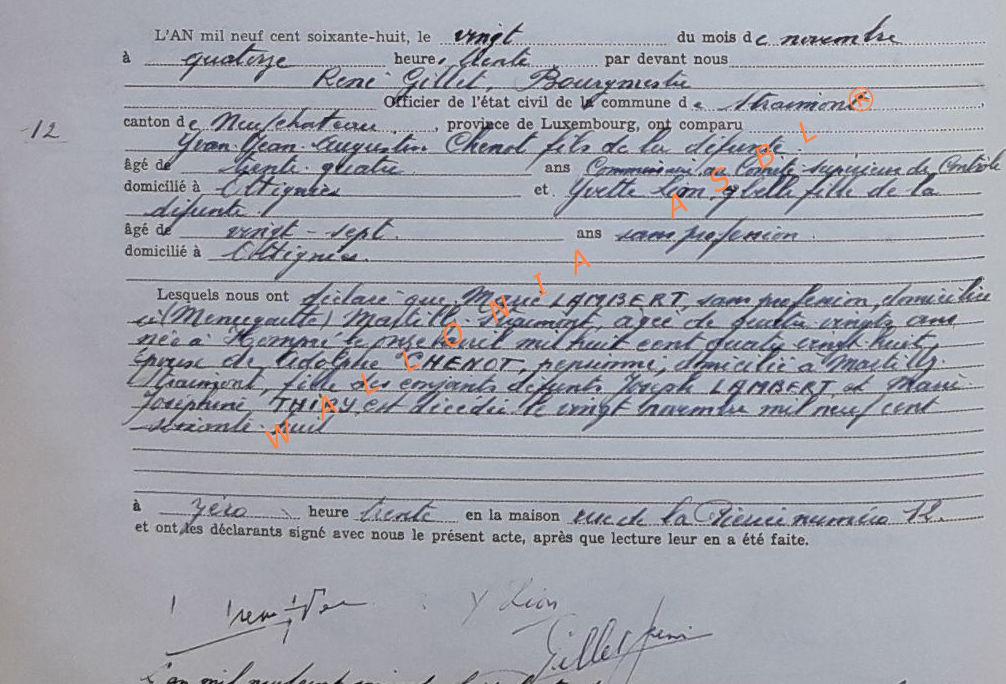 L'AN mil neuf cent soixante-huit, le vingt du mois de novembre
à quatorze heure, trente par devant nous
René Gillet, Bourgmestre
Officier de l'état civil de la commune de Straimont
12
canton de Neufchateau, province de Luxembourg, ont comparu
Yvan Jean Augustin Chenot fils de la défunte
âgé de trente quatre ans Commissaire au Comité supérieur de Contrôle
domicilié à Ottignies et Yvette Lion, belle fille de la
défunte
âgé de vingt-sept ans sans profession
domicilié à Ottignies.
Lesquels nous ont déclaré que Marie LAMBERT, sans profession, domiciliée
à Martilly Straimont, âgée de quatre vingts ans
née à le onze avril mil huit cent quatre vingt huit,
épouse de Adolphe CHENOT, pensionné, domicilié à Martilly
Straimont, fille des défunts Joseph LAMBERT et Marie
Joséphine THIRY est décédée le vingt novembre mil neuf cent
soixante huit
à zéro heure trente en la maison rue de la numéro 12.
et ont, les déclarants signé avec nous le présent acte, après que lecture leur en a été faite.
Y Lion
Gillet René
L'an mil neuf cent
WALLONIA ASBL ®